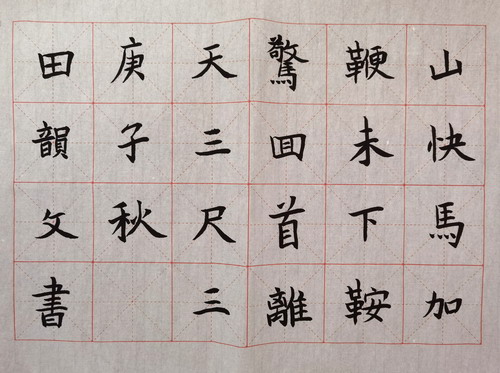 山快馬加
鞭未下鞍
驚回首離
天三尺三
庚子秋
田韻文書